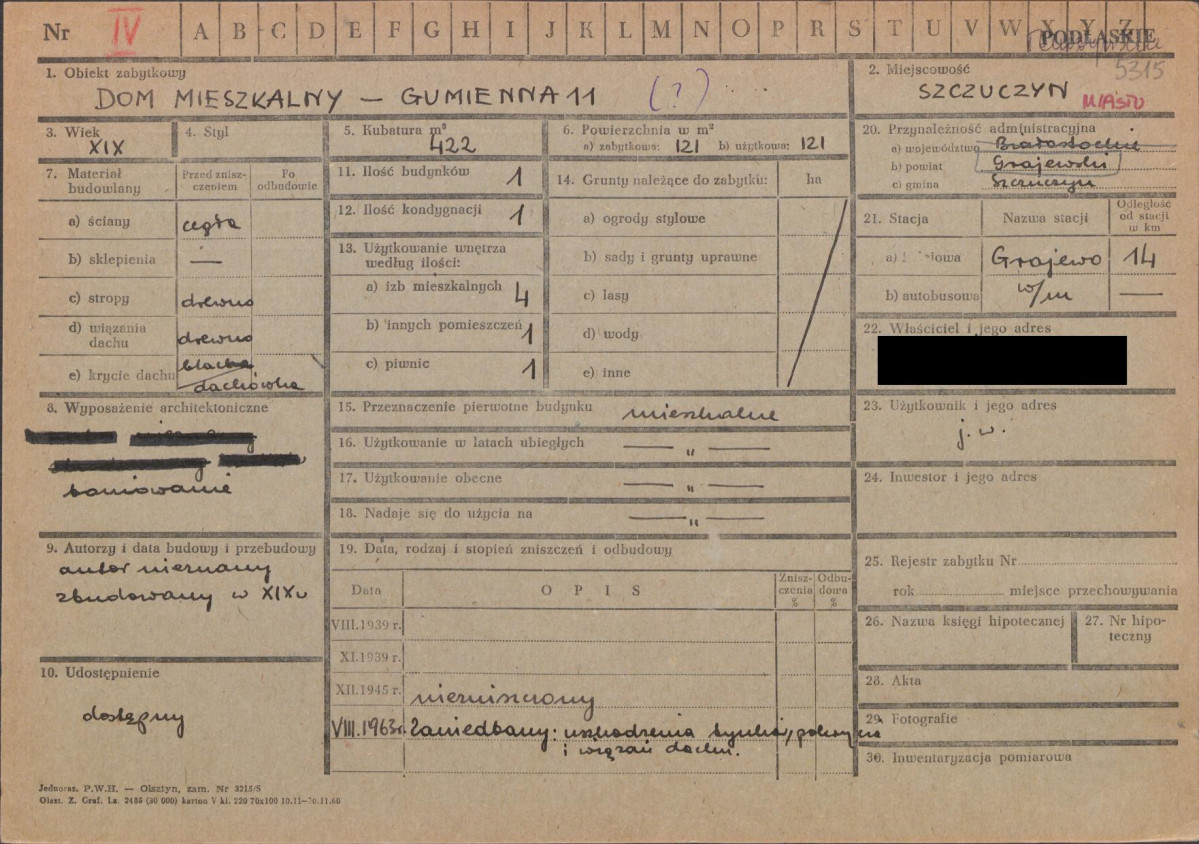 Nr IV A B C D E F G H I J K L M N O P R S T U V W X Y Z PODLASKIE
5315
1. Obiekt zabytkowy
DOM MIESZKALNY — GUMIENNA 11 (?)
2. Miejscowość
SZCZUCZYN MIASTO
3. Wiek
XIX
4. Styl
5. Kubatura m³
422
6. Powierzchnia w m²
a) zabytkowa: 121 b) użytkowa: 121
7. Materiał budowlany
Przed zniszczeniem
Po odbudowie
a) ściany cegła
b) sklepienia —
c) stropy drewno
d) wiązania dachu drewno
e) krycie dachu blacha
dachówka
8. Wyposażenie architektoniczne
boniowanie
9. Autorzy i data budowy i przebudowy
autor nieznany
zbudowany w XIX w
10. Udostępnienie
dostępny
11. Ilość budynków 1
12. Ilość kondygnacji 1
13. Użytkowanie wnętrza
według ilości:
a) izb mieszkalnych 4
b) innych pomieszczeń 1
c) piwnic 1
14. Grunty należące do zabytku: ha
a) ogrody stylowe
b) sady i grunty uprawne
c) lasy
d) wody
e) inne
15. Przeznaczenie pierwotne budynku mieszkalne
16. Użytkowanie w latach ubiegłych — " —
17. Użytkowanie obecne — " —
18. Nadaje się do użycia na — " —
19. Data, rodzaj i stopień zniszczeń i odbudowy
Data OPIS Zniszczenia % Odbudowa %
VIII.1939 r.
XI.1939 r.
XII.1945 r. niezniszczony
VIII.1963 r. Zaniedbany: uszkodzenia tynków, pokrycia
i wiązań dachu.
20. Przynależność administracyjna
a) województwo Białostockie
b) powiat Grajewski
c) gmina Szczuczyn
21. Stacja Nazwa stacji Odległość od stacji w km
a) Grajewo 14
b) autobusowa w/m —
22. Właściciel i jego adres
23. Użytkownik i jego adres
j. w.
24. Inwestor i jego adres
25. Rejestr zabytku Nr
rok miejsce przechowywania
26. Nazwa księgi hipotecznej
27. Nr hipoteczny
28. Akta
29. Fotografie
30. Inwentaryzacja pomiarowa
Jednoraz. P.W.H. — Olsztyn, zam. Nr 3215/S
Olszt. Z. Graf. Lz. 2485 (30 000) karton V kl. 220 70x100 10.11—30.11.60